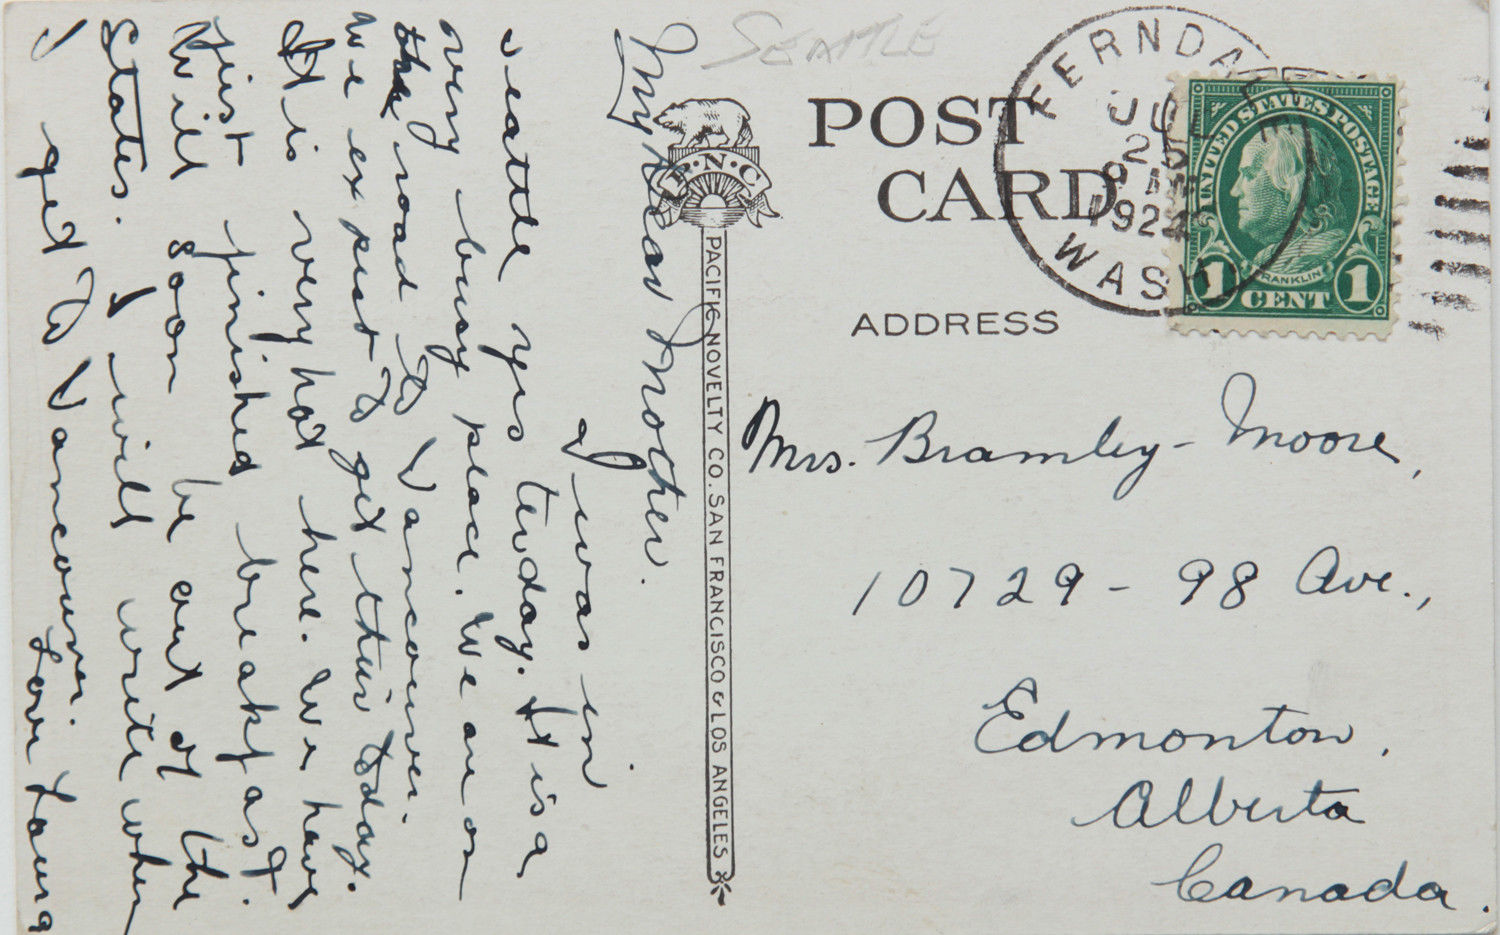 SEATTLE
My Dear Mother.
I was in
Seattle yesterday. It is a
very busy place. We are on
the road to Vancouver.
We expect to get their today.
It is very hot here. We have
just finished breakfast.
Will soon be out of the
States. I will write when
I get to Vancouver.
Love Laura
P.N.C.
PACIFIC NOVELTY CO. SAN FRANCISCO & LOS ANGELES
POST
CARD
ADDRESS
FERNDALE
JUL
25
9 AM
1924
WASH.
UNITED STATES POSTAGE
FRANKLIN
1 CENT 1
Mrs. Bramley-Moore,
10729-98 Ave.,
Edmonton,
Alberta
Canada.